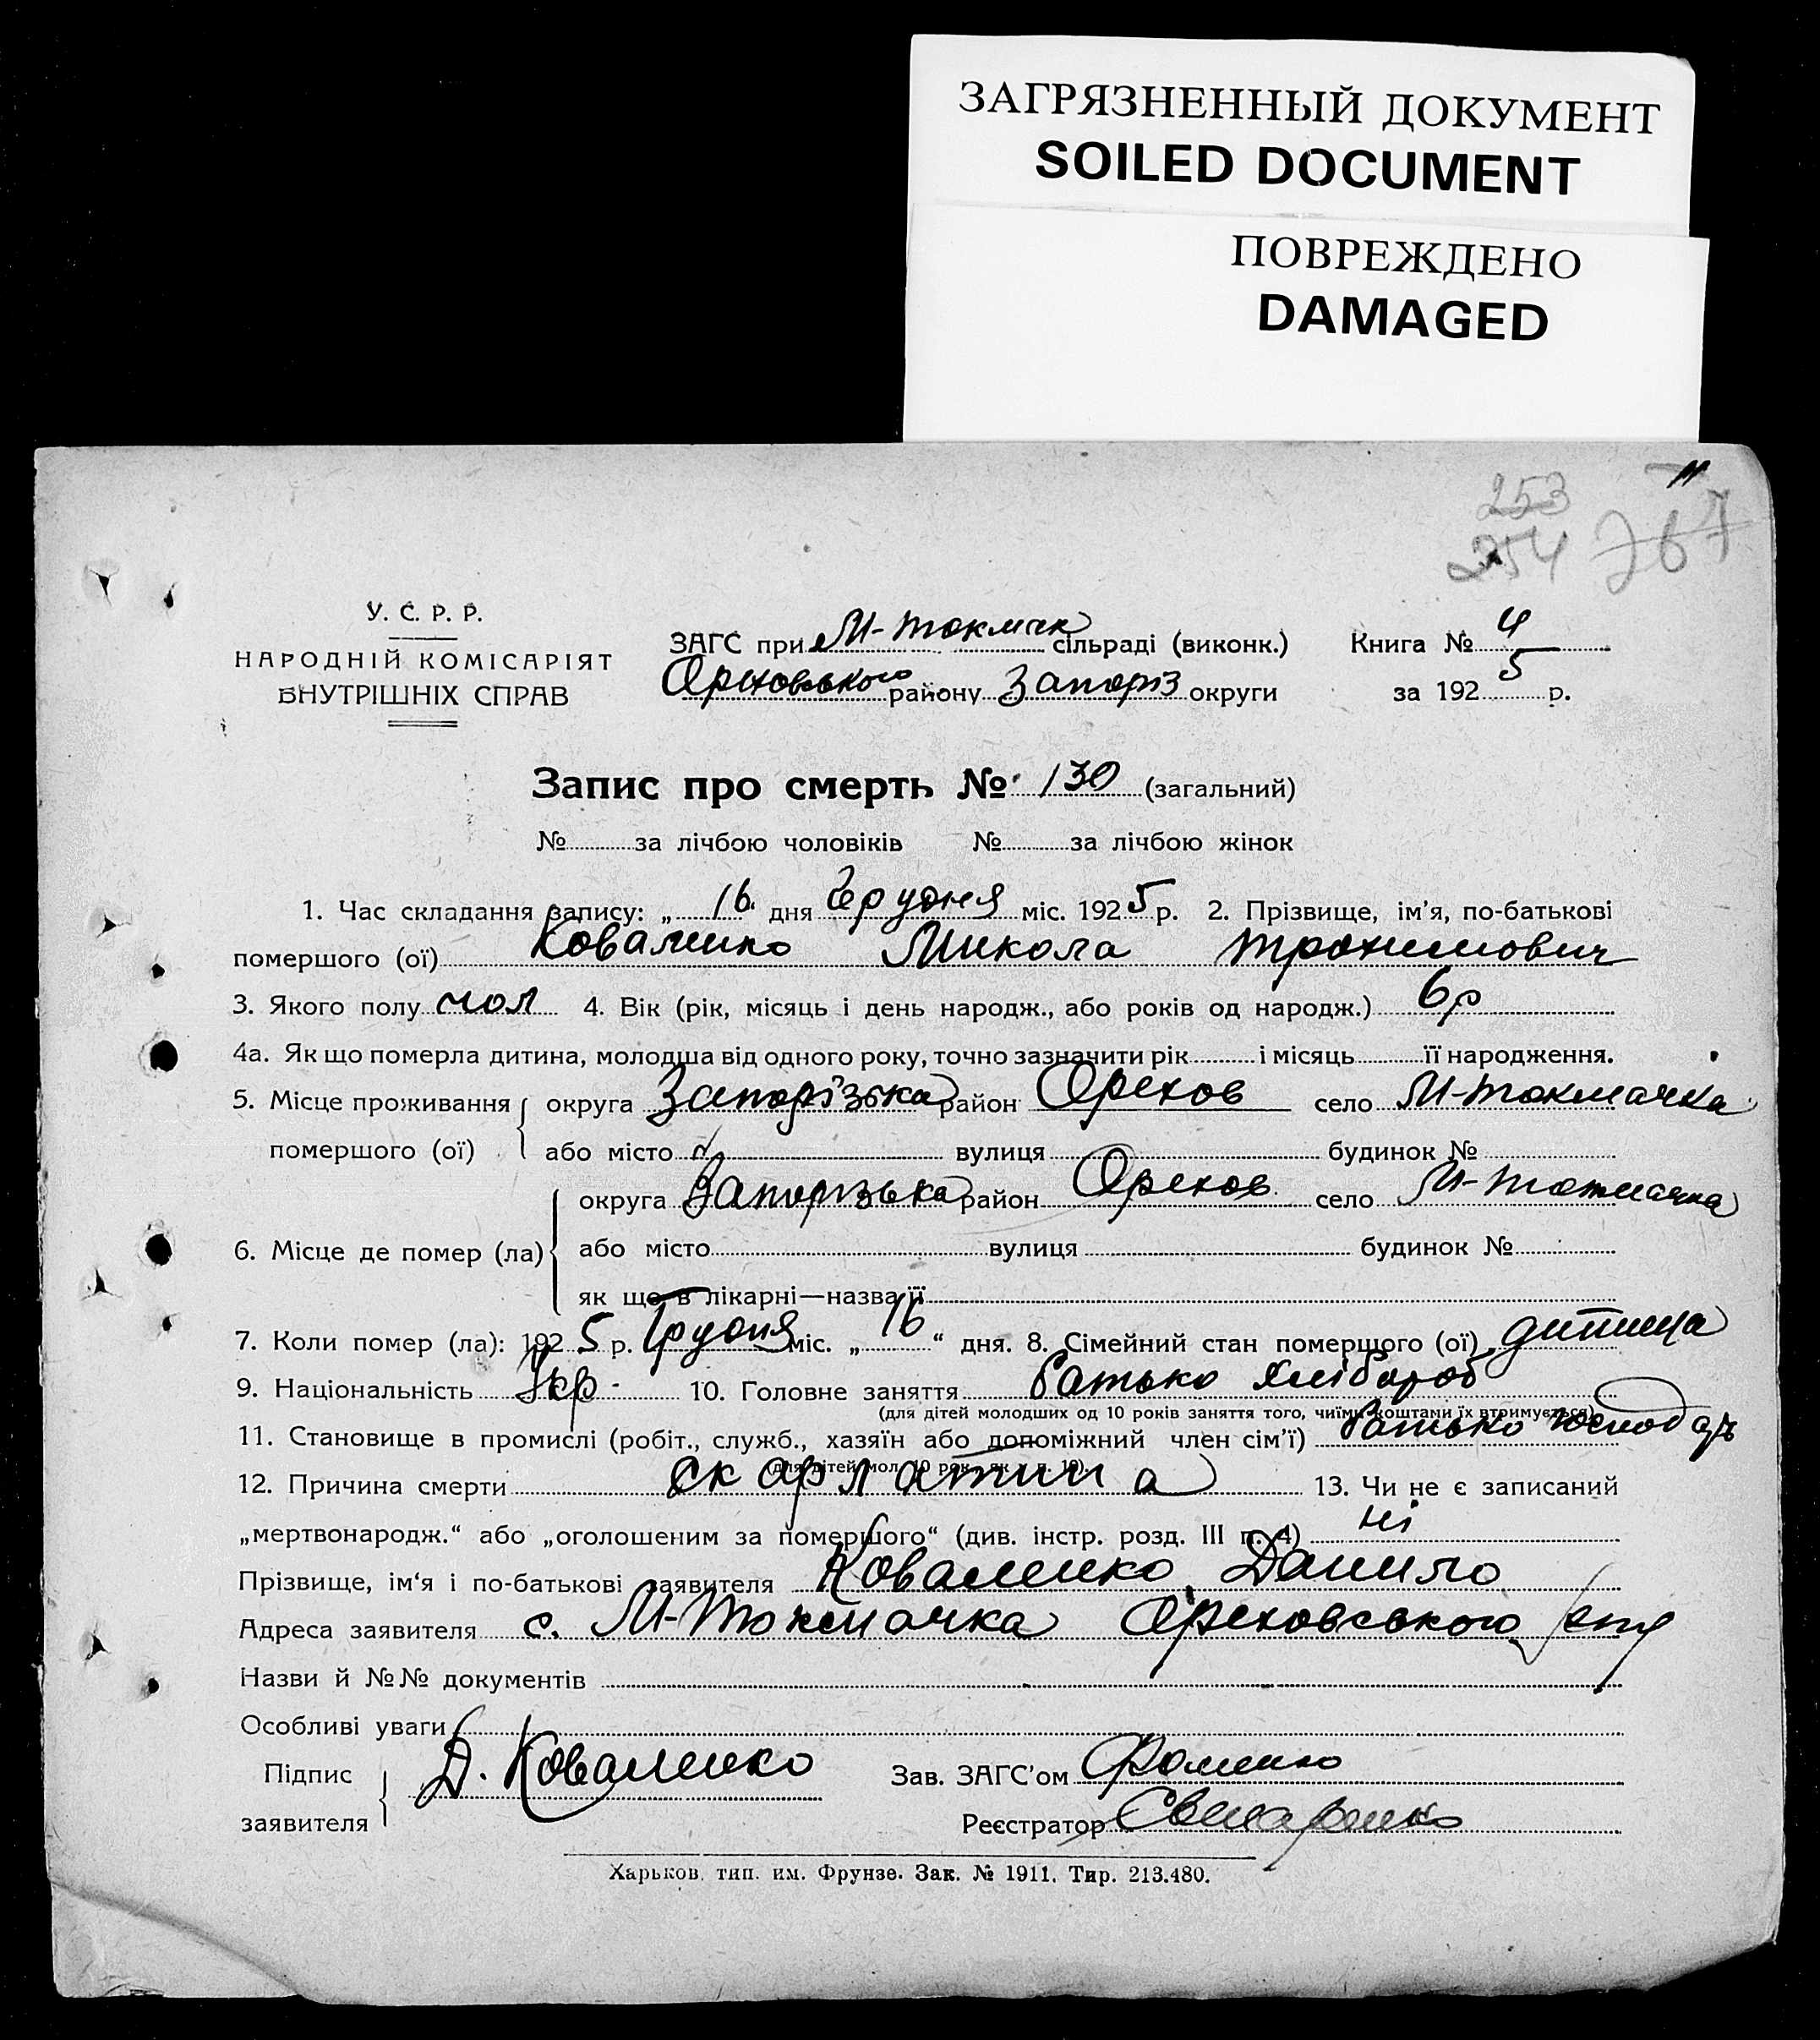 ЗАГРЯЗНЕННЫЙ ДОКУМЕНТ
SOILED DOCUMENT
ПОВРЕЖДЕНО
DAMAGED
11
253
254 767
У. С. Р. Р.
НАРОДНІЙ КОМІСАРІЯТ
ВНУТРІШНІХ СПРАВ
ЗАГС при М-Токмачк сільраді (виконк.) Книга № 4
Ореховського району Запоріз округи за 1925 р.
Запис про смерть № 130 (загальний)
№ за лічбою чоловіків № за лічбою жінок
1. Час складання запису: „ 16 “ дня Грудня міс. 1925 р. 2. Прізвище, ім'я, по-батькові
помершого (ої) Коваленко Микола Трохимович
3. Якого полу чол 4. Вік (рік, місяць і день народж., або років од народж.) 6 р
4а. Як що померла дитина, молодша від одного року, точно зазначити рік і місяць її народження.
5. Місце проживання округа Запорізька район Орехов село М-Токмачка
помершого (ої) або місто вулиця будинок №
округа Запорізька район Орехов село М-Токмачка
6. Місце де помер (ла) або місто вулиця будинок №
як що в лікарні—назва її
7. Коли помер (ла): 1925 р. Грудня міс. „ 16 “ дня. 8. Сімейний стан помершого (ої) дитина
9. Національність Укр. 10. Головне заняття батько хлібороб
(для дітей молодших од 10 років заняття того, чиїми коштами їх втримується)
11. Становище в промислі (робіт., служб., хазяїн або допоміжний член сім'ї) батько господарь
(для дітей мол. 10 рок. як у п. 10)
12. Причина смерти скарлатина 13. Чи не є записаний
„мертвонародж.“ або „оголошеним за помершого“ (див. інстр. розд. III п. 4) ні
Прізвище, ім'я і по-батькові заявителя Коваленко Данило
Адреса заявителя с. М-Токмачка Ореховського
Назви й №№ документів
Особливі уваги
Підпис Д. Коваленко Зав. ЗАГС'ом Фоменко
заявителя Реєстратор
Харьков, тип. им. Фрунзе. Зак. № 1911. Тир. 213.480.